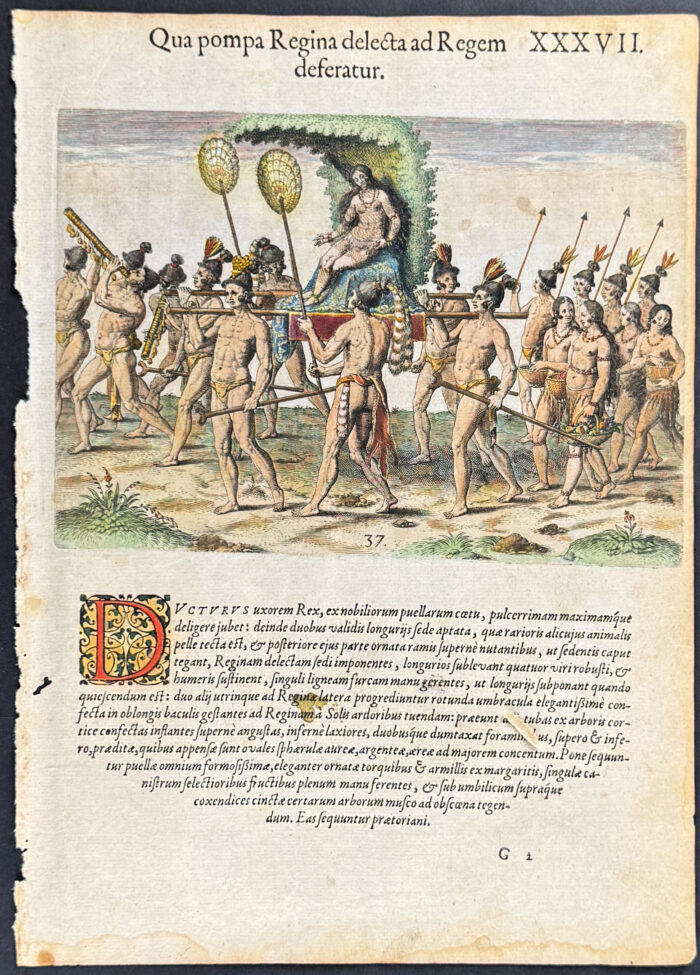 Qua pompa Regina delecta ad Regem XXXVII.
deferatur.
37
DVCTVRVS uxorem Rex, ex nobiliorum puellarum cœtu, pulcerrimam maximamq́ue
deligere jubet: deinde duobus validis longurijs sede aptata, quæ rarioris alicujus animalis
pelle tecta est, & posteriore ejus parte ornata ramis supernè nutantibus, ut sedentis caput
tegant, Reginam delectam sedi imponentes, longurios sublevant quatuor viri robusti, &
humeris sustinent, singuli ligneam furcam manu gerentes, ut longurijs subponant quando
quiescendum est: duo alij utrinque ad Reginæ latera progrediuntur rotunda umbracula elegantißimè con-
fecta in oblongis baculis gestantes ad Reginam à Solis ardoribus tuendam: præeunt tubas ex arboris cor-
tice confectas inflantes supernè angustas, infernè laxiores, duobusque dumtaxat foramin us, supero & infe-
ro, præditæ, quibus appensæ sunt ovales sphærulæ aureæ, argenteæ, æreæ ad majorem concentum. Pone sequun-
tur puellæ omnium formosißimæ, eleganter ornatæ torquibus & armillis ex margaritis, singulæ ca-
nistrum selectioribus fructibus plenum manu ferentes, & sub umbilicum supraque
coxendices cinctæ certarum arborum musco ad obscœna tegen-
dum. Eas sequuntur prætoriani.
G 2